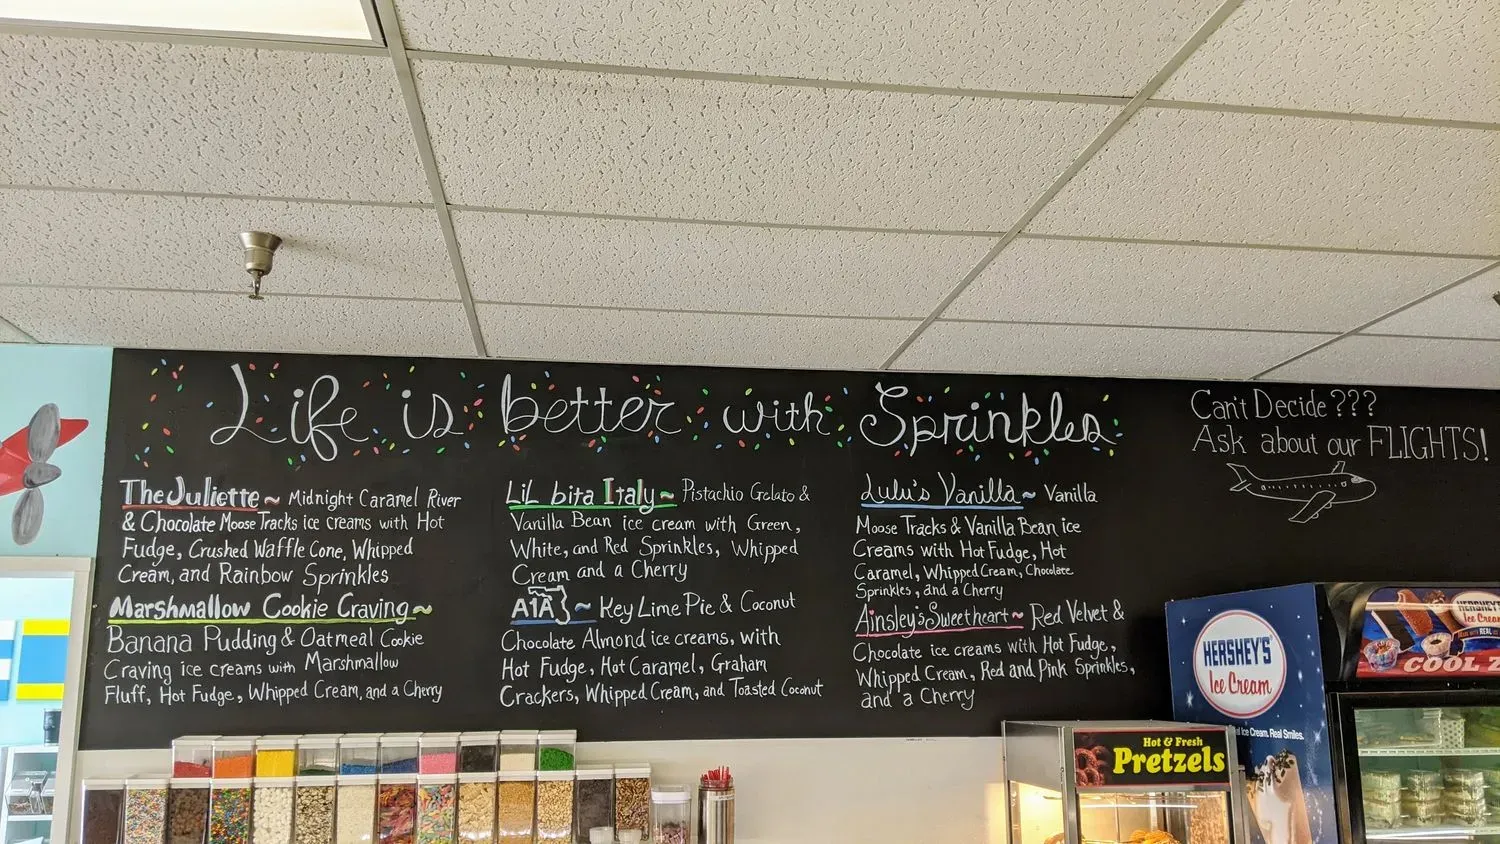 Life is better with Sprinkles
Can't Decide ???
Ask about our FLIGHTS!
The Juliette ~ Midnight Caramel River
& Chocolate Moose Tracks ice creams with Hot
Fudge, Crushed Waffle Cone, Whipped
Cream, and Rainbow Sprinkles
Marshmallow Cookie Craving ~
Banana Pudding & Oatmeal Cookie
Craving ice creams with Marshmallow
Fluff, Hot Fudge, Whipped Cream, and a Cherry
LiL bita Italy ~ Pistachio Gelato &
Vanilla Bean ice cream with Green,
White, and Red Sprinkles, Whipped
Cream and a Cherry
A1A ~ Key Lime Pie & Coconut
Chocolate Almond ice creams, with
Hot Fudge, Hot Caramel, Graham
Crackers, Whipped Cream, and Toasted Coconut
Lulu's Vanilla ~ Vanilla
Moose Tracks & Vanilla Bean ice
Creams with Hot Fudge, Hot
Caramel, Whipped Cream, Chocolate
Sprinkles, and a Cherry
Ainsley's Sweetheart ~ Red Velvet &
Chocolate ice creams with Hot Fudge,
Whipped Cream, Red and Pink Sprinkles,
and a Cherry
HERSHEY'S
Ice Cream
Ice Cream. Real Smiles.
Hot & Fresh
Pretzels
HERSHEY'S
Ice Cream
COOL